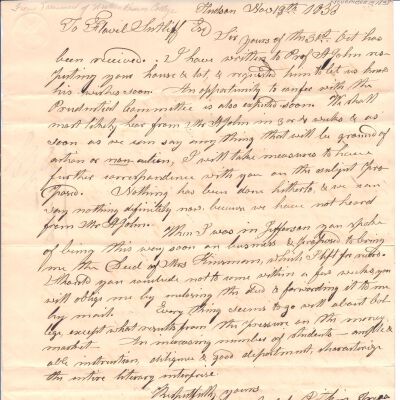 From Treasurer of Western Reserve College
Hudson Nov 13th 1838
To Flavel Sutliff Esq Sir yours of the 31st Oct has
been received. I have written to Prof. St John re-
specting your house & lot, & requested him to let us know
his wishes soon. An opportunity to confer with the
Prudential Committee is also expected soon. We shall
most likely hear from Mr St John in 3 or 4 weeks & as
soon as we can say any thing that will be ground of
action or non-action, I will take measures to have
further correspondence with you on the subject pro-
posed. Nothing has been done hitherto, & we can
say nothing definitely now, because we have not heard
from Mr St John.
When I was in Jefferson you spoke
of being this way soon on business & proposed to bring
me the Deed of Mrs Kinsman, which I left for record.
Should you conclude not to come within a few weeks, you
will oblige me by enclosing the deed & forwarding it to me
by mail. Every thing seems to go well about Col-
lege except what results from the pressure on the money
market. An increasing number of students - ample &
able instruction, diligence & good deportment, characterize
the entire literary enterprise.
Respectfully yours